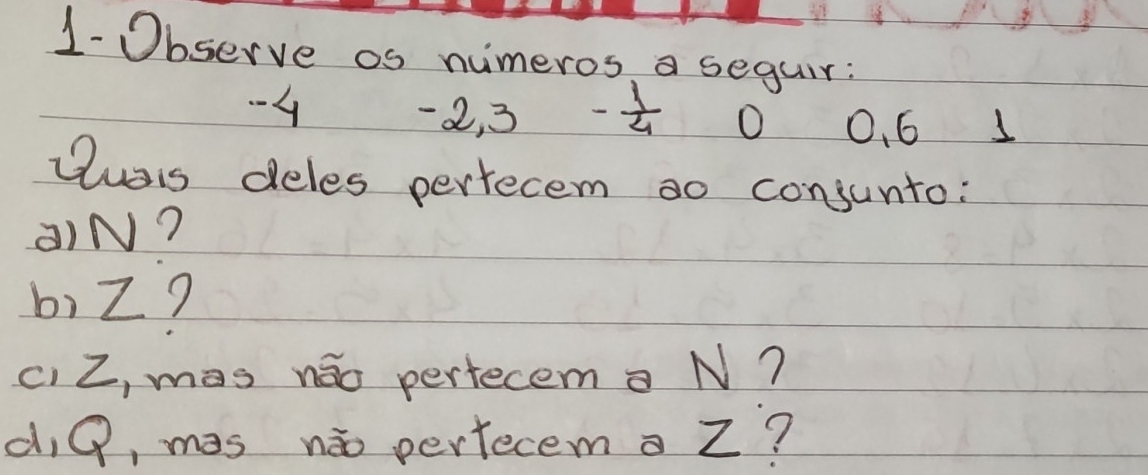 1-Observe os números a seguir:
-4 -2,3 -1/4 0 0,6 1
Quais deles pertecem ao conjunto:
a) N?
b) Z?
c) Z, mas não pertecem a N?
d) Q, mas não pertecem a Z?